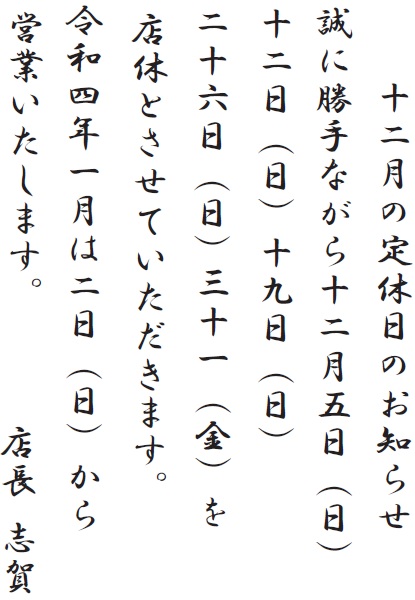 十二月の定休日のお知らせ
誠に勝手ながら十二月五日（日）
十二日（日）十九日（日）
二十六日（日）三十一（金）を
店休とさせていただきます。
令和四年一月は二日（日）から
営業いたします。
店長　志賀